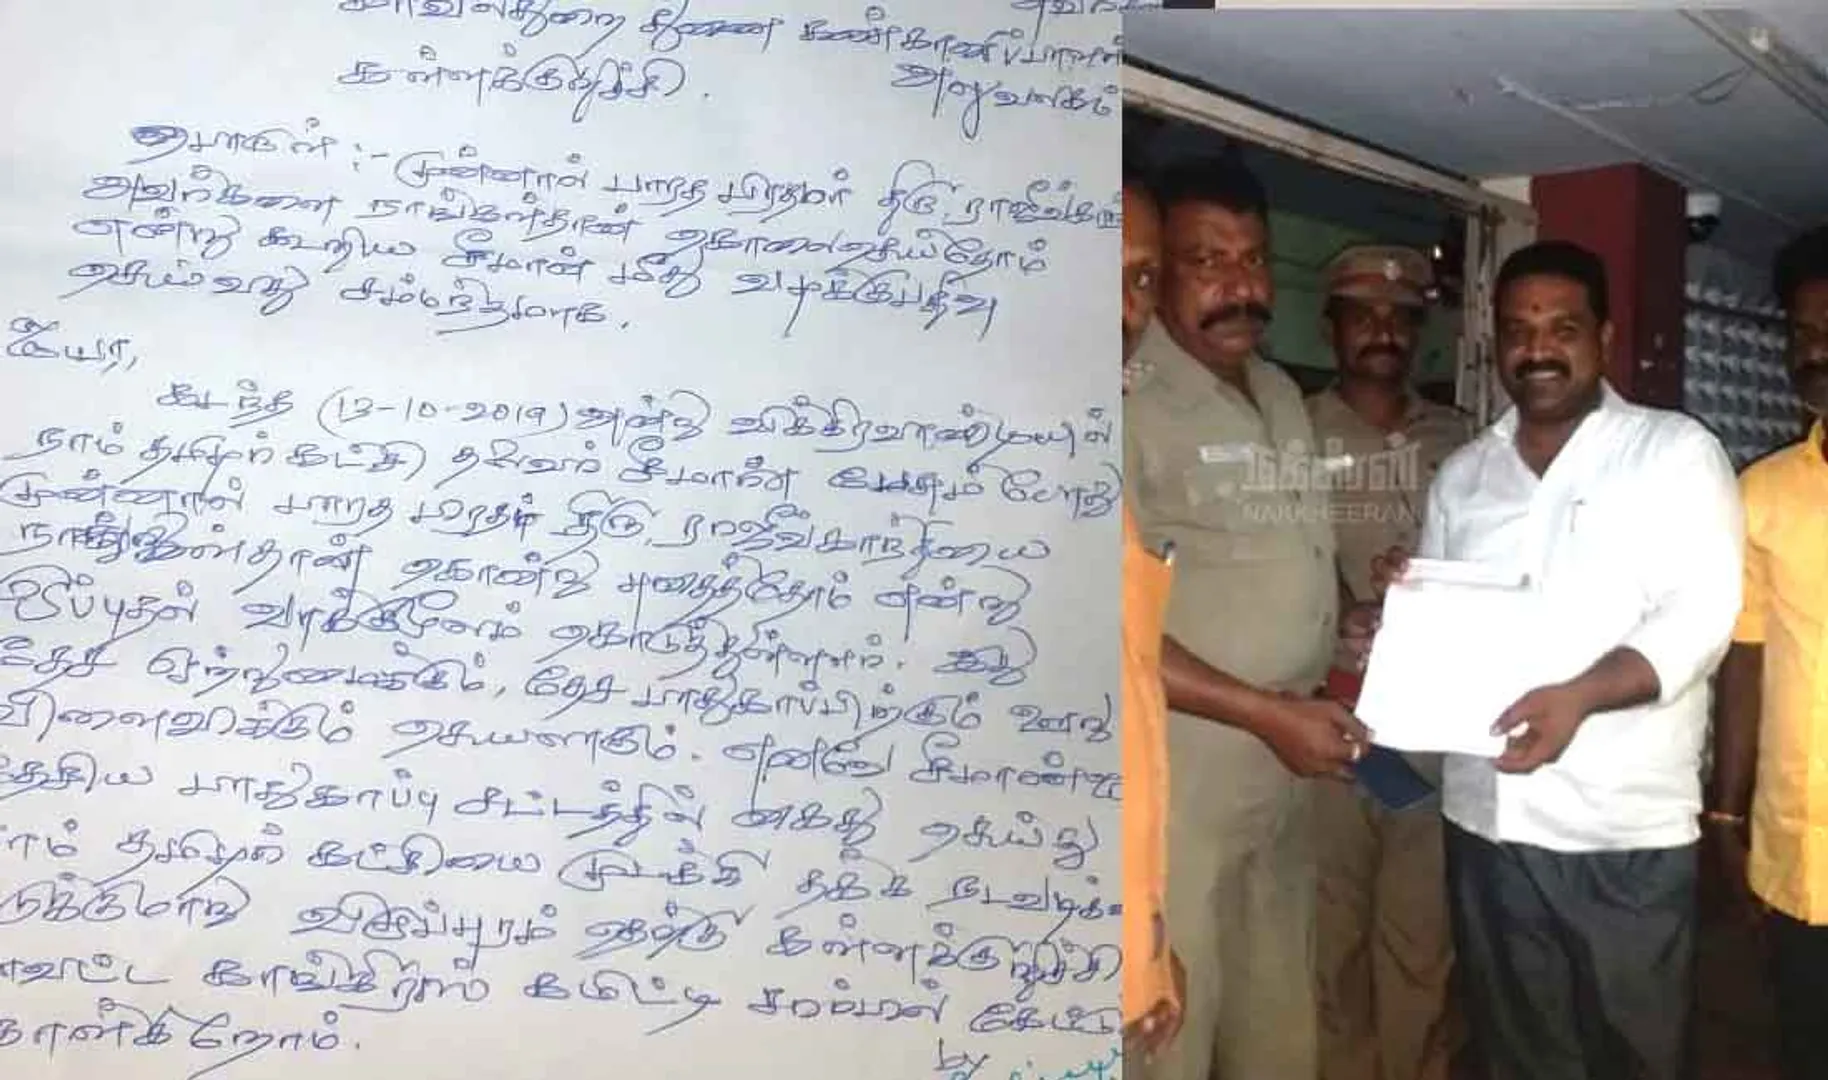 காவல்துறை துணை கண்காணிப்பாளர்
கள்ளக்குறிச்சி. அலுவலகம்
பொருள் :- முன்னாள் பாரத பிரதமர் திரு. ராஜீவ்காந்
அவர்களை நாங்கள்தான் கொலைசெய்தோம்
என்று கூறிய சீமான் மீது வழக்குபதிவு
செய்வது சம்மந்தமாக.
ஐயா,
கடந்த (13-10-2019) அன்று விக்கிரவாண்டியில்
நாம் தமிழர் கட்சி தலைவர் சீமான் பேசும் போது
முன்னாள் பாரத பிரதமர் திரு. ராஜீவ்காந்தியை
நாங்கள்தான் கொன்று புதைத்தோம் என்று
ஒப்புதல் வாக்குமூலம் கொடுத்துள்ளார். இது
தேச ஒற்றுமைக்கும், தேச பாதுகாப்பிற்கும் ஊறு
விளைவிக்கும் செயலாகும். எனவே சீமானை
தேசிய பாதுகாப்பு சட்டத்தில் கைது செய்து
நாம் தமிழர் கட்சியை முடக்கி தக்க நடவடிக்கை
எடுக்குமாறு விழுப்புரம் தெற்கு கள்ளக்குறிச்சி
மாவட்ட காங்கிரஸ் கமிட்டி சார்பில் கேட்டு
கொள்கிறோம்.
by
நக்கீரன்
NAKKHEERAN